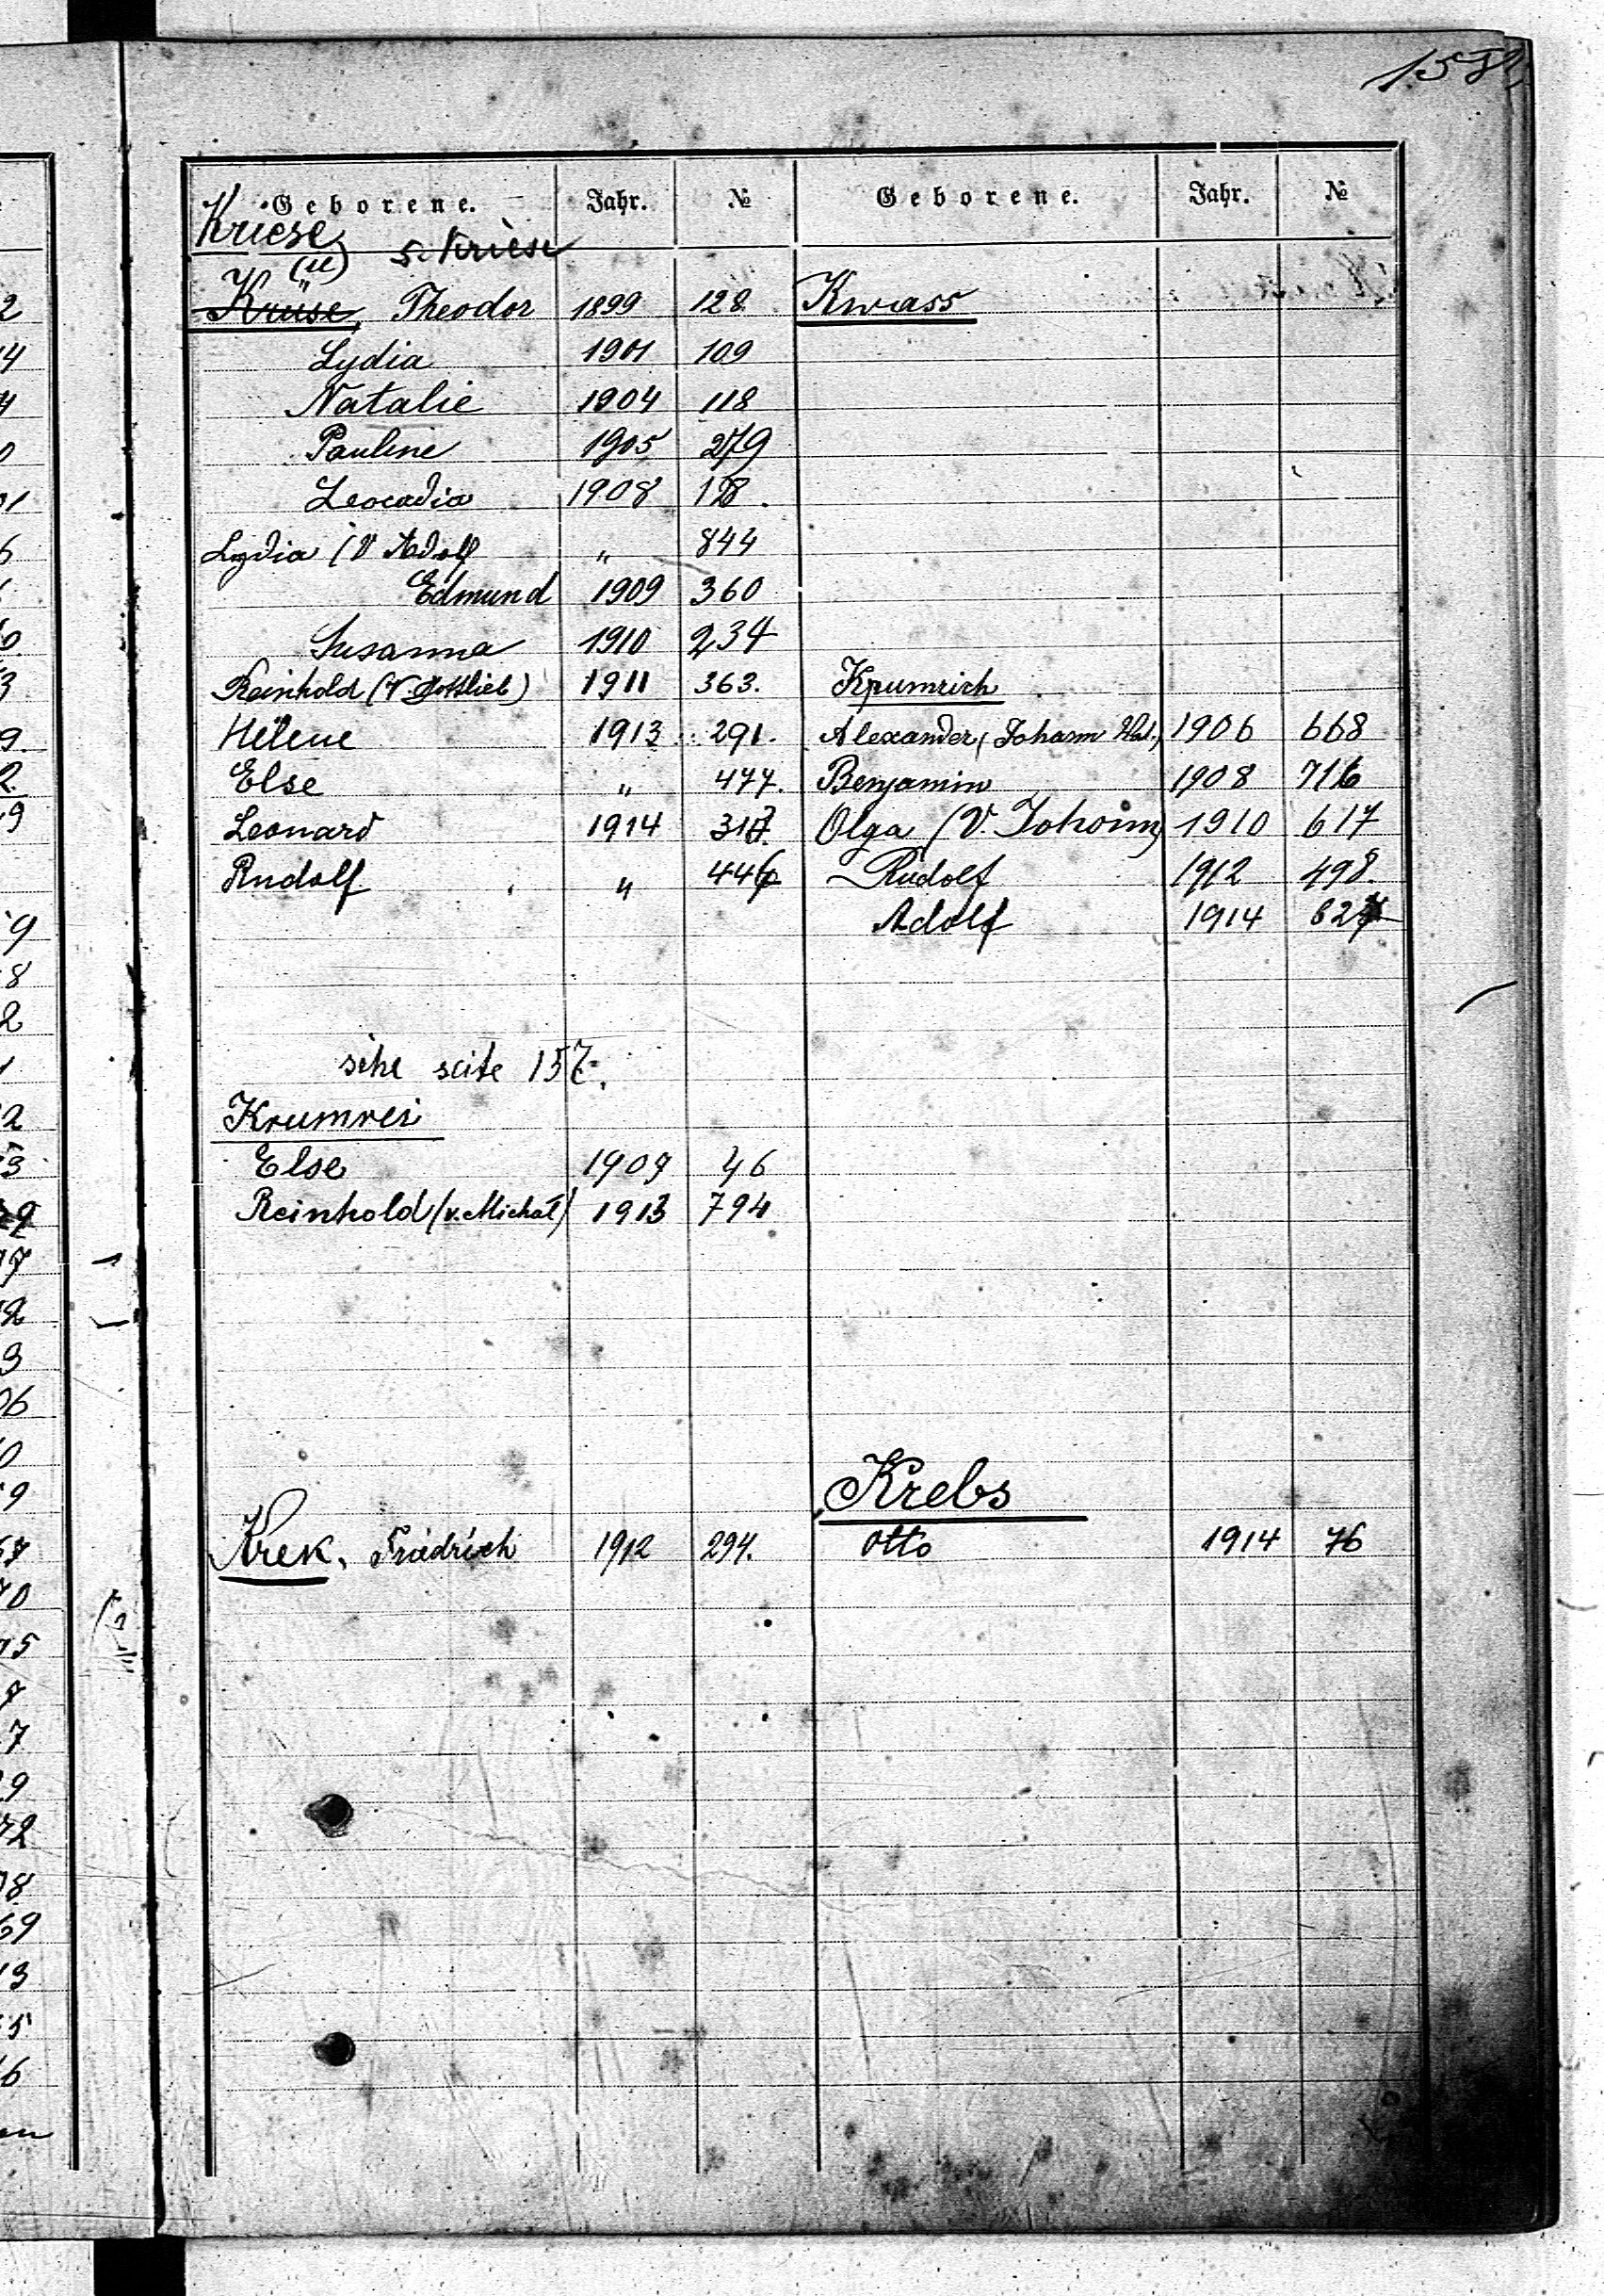 158.
Geborene. Jahr. № Geborene. Jahr. №
Kriese
(ü) s. Kriese
Krüse, Theodor 1899 128. Kwass
Lydia 1901 109
Natalie 1904 118
Pauline 1905 279
Leocadia 1908 128.
Lydia (V Adolf „ 844
Edmund 1909 360
Susanna 1910 234
Reinhold (V. Gottlieb) 1911 363. Krumrich
Helene 1913 291. Alexander, (Johann 1906 668
Else „ 477. Benjamin 1908 716
Leonard 1914 317. Olga (V. Johann) 1910 617
Rudolf „ 446 Rudolf 1912 498.
Adolf 1914 627
sihe seite 157.
Krumrei
Else 1909 46
Reinhold (v. Michał) 1913 794
Krebs
Krek, Friedrich 1912 294. Otto 1914 76